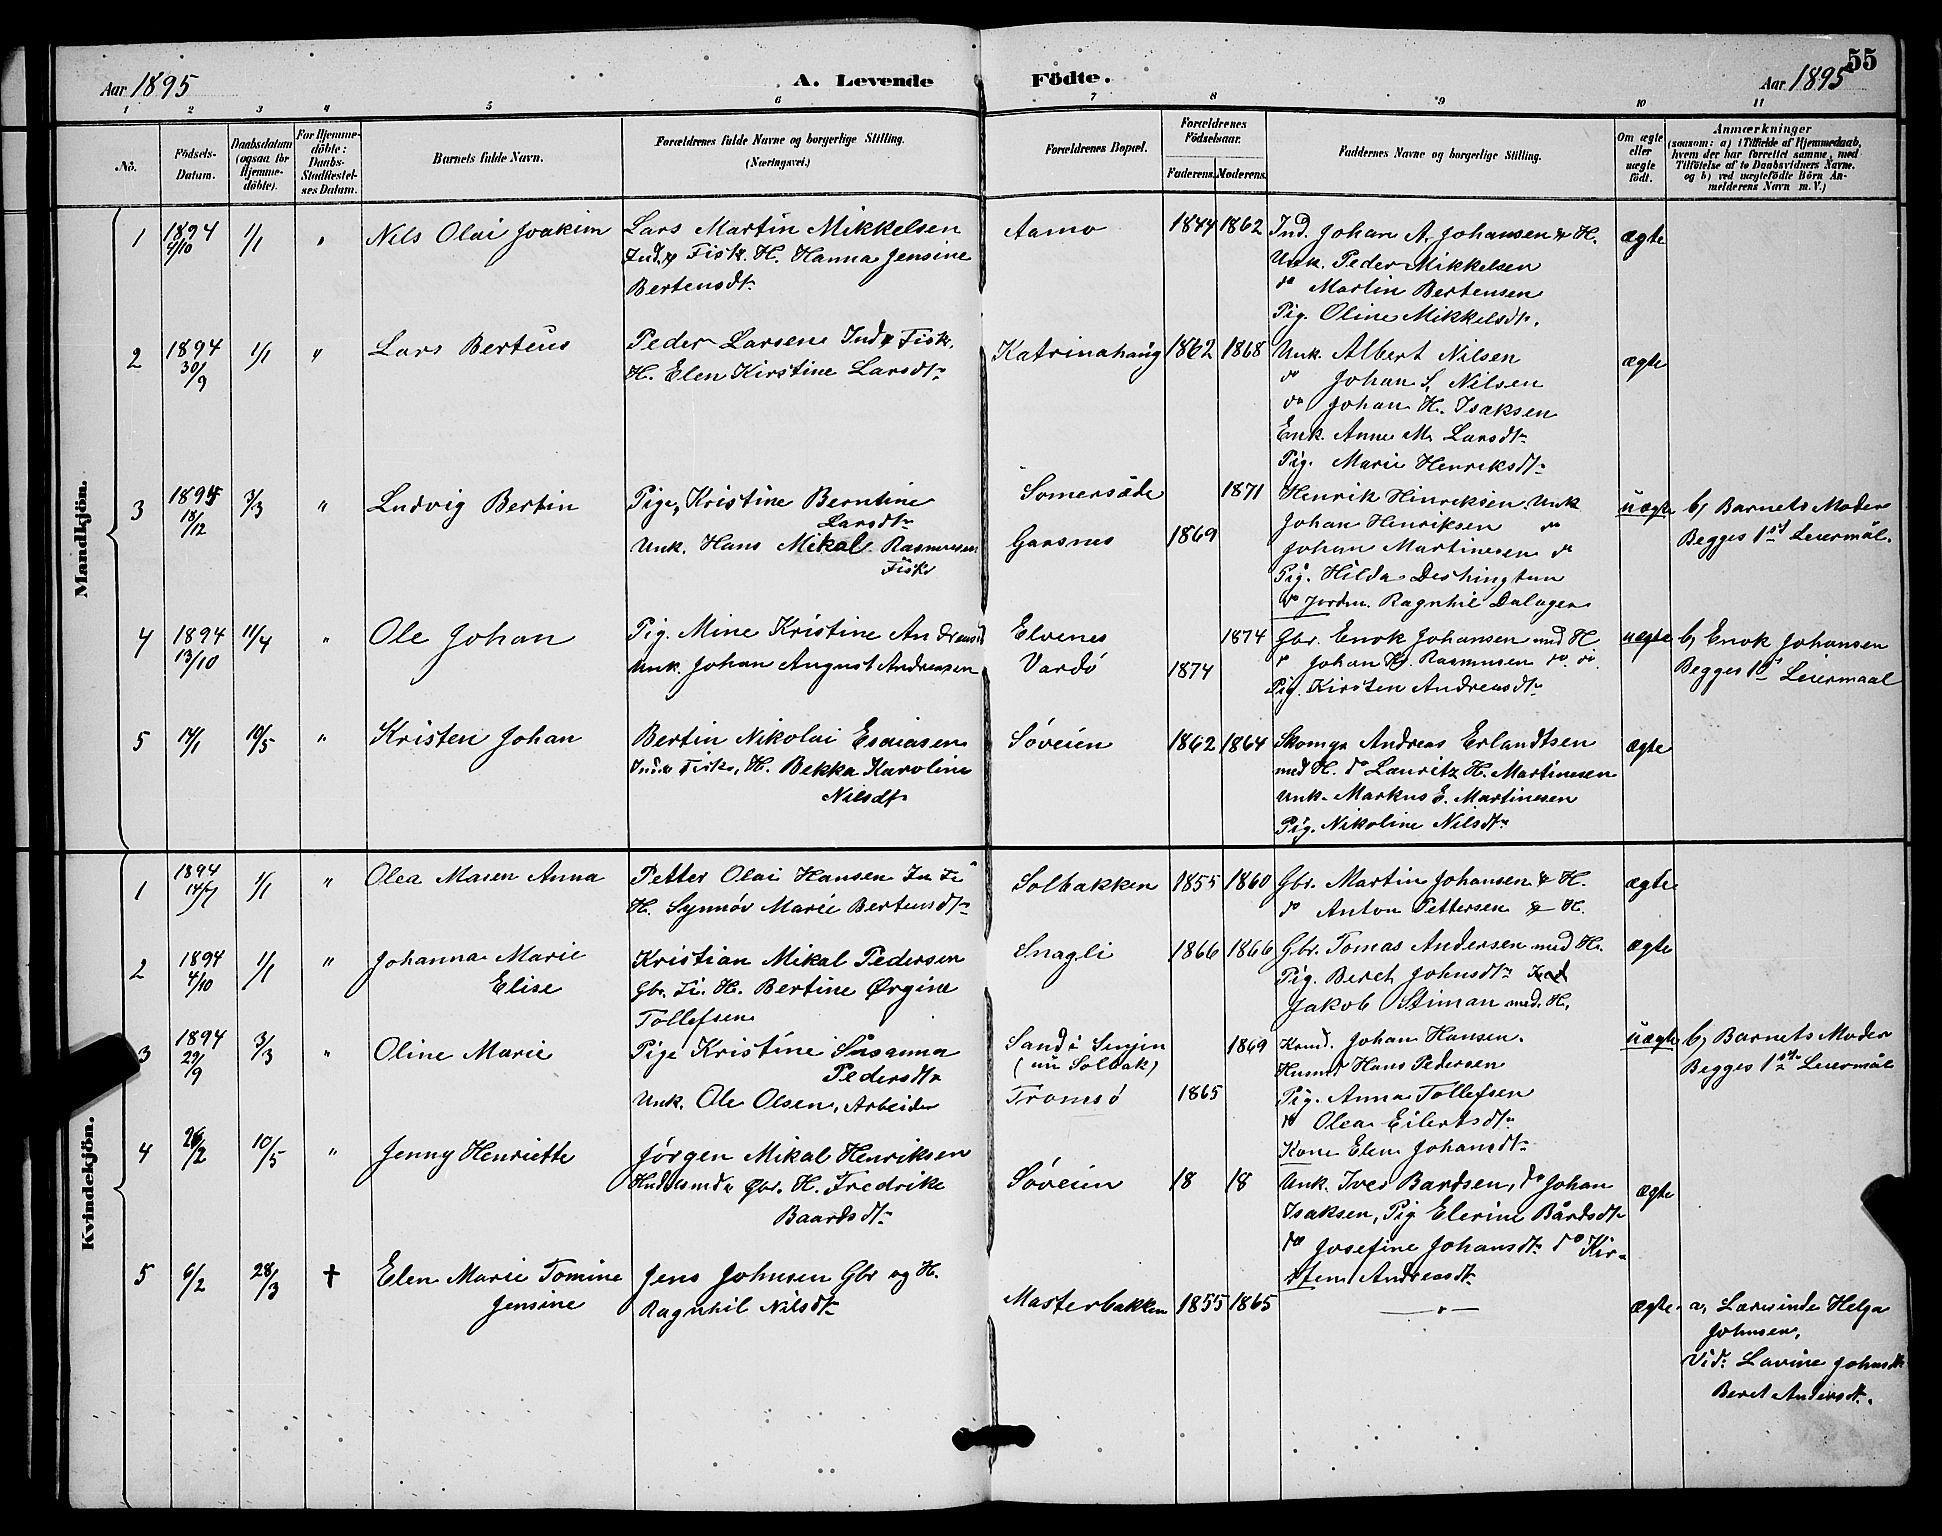 55
Aar 1895 A. Levende Födte. Aar 1895
1 2 3 4 5 6 7 8 9 10 11
No. Födsels-Datum. Daabsdatum (ogsaa for Hjemme-döbte). For Hjemme-döbte: Daabs-Stadfæstel-ses Datum. Barnets fulde Navn. Forældrenes fulde Navne og borgerlige Stilling. (Næringsvei.) Forældrenes Bopæl. Forældrenes Födselsaar. Faderens. Moderens. Faddernes Navne og borgerlige Stilling. Om ægte eller uægte födt. Anmærkninger (saasom: a) i Tilfælde af Hjemmedaab, hvem der har forrettet samme, med Tilföielse af to Daabsvidners Navne. og b) ved uægtefödte Börn An-melderens Navn m. V.)
Mandkjön.
1 1894 4/10 1/1 " Nils Olai Joakim Lars Martin Mikkelsen Aamo 1844 1862 Ind. Johan A. Johansen & H. ægte
Ind. & Fisk. H. Hanna Jensine Unk. Peder Mikkelsen
Bertensdtr do Martin Bertensen
Pig. Oline Mikkelsdtr.
2 1894 30/9 1/1 " Lars Berteus Peder Larsen Ind & Fisk. Katrinahaug 1862 1868 Unk. Albert Nilsen ægte
H. Elen Kirstine Larsdtr do Johan S. Nilsen
do Johan H. Isaksen
Enk. Anne M. Larsdtr
Pig. Marie Henriksdtr
3 1894 18/12 3/3 " Ludvig Bertin Pige, Kristine Berntine Somersæde 1871 Henrik Hinriksen Unk uægte b, Barnets Moder
Larsdtr Johan Henriksen do Begges 1st Leiermål.
Unk. Hans Mikal Rasmussen Garsnes 1869 Johan Martinesen do
Fisk. Pig. Hilda Deshingtun
do Jordm. Ragnhil Dalager
4 1894 13/10 11/4 " Ole Johan Pig. Mine Kristine Andreasd Elvenes 1874 Gbr. Enok Johansen med H uægte b, Enok Johansen
Unk. Johan August Andreasen Vardö 1874 do Johan Kr. Rasmusen do do. Begges 1st Leiermaal
Pig. Kirsten Andreasdtr
5 14/1 10/5 " Kristen Johan Bertin Nikolai Esaiasen Söveien 1862 1864 Skomgr Andreas Erlandtsen ægte
Ind & Fisk. H. Bekka Karoline med H. do Lauritz H. Martinesen
Nilsdtr Unk. Markus E. Martinesen
Pig. Nikoline Nilsdtr
Kvindekjön.
1 1894 14/7 1/1 " Olea Maren Anna Petter Olai Hansen In Fi Solbakken 1855 1860 Gbr. Martin Johansen & H. ægte
H. Synnöv Marie Bertensdtr do Anton Pettersen & H.
2 1894 4/10 1/1 " Johanna Marie Kristian Mikal Pedersen Snagli 1866 1866 Gbr. Tomas Andersen med H. ægte
Elise Gbr. Fi. H. Bertine Ørgine Pig. Beret Johnsdtr Ind
Tollefsen Jakob Stiman med H.
3 1894 29/9 3/3 " Oline Marie Pige Kristine Susanna Sandö Senjen 1869 Johan Hansen. uægte b, Barnets Moder
Pedersdtr (nu Solbak) Hans Pedersen Begges 1ste Leiermål
Unk. Ole Olsen, Arbeider Tromsö 1865 Pig. Anna Tollefsen
do Olea Eilertsdtr
Kone Elen Johansdtr
4 26/2 10/5 " Jenny Henriette Jørgen Mikal Henriksen Söveien 18 18 Unk. Iver Bardsen, do Johan ægte
Gbr. H. Fredrike Isaksen, Pig Elerine Bårdsdtr
Baardsdtr do Josefine Johansdtr do Kir-
sten Andreasdtr
5 6/2 28/3 † Elen Marie Tomine Jens Johnsen Gbr og H. Masterbakken 1855 1865 — " — ægte. a, Lærerinde Helga
Jensine Ragnhil Nilsdtr Johnsen,
Vid: Lovine Johnsdtr
Beret Andersdtr.